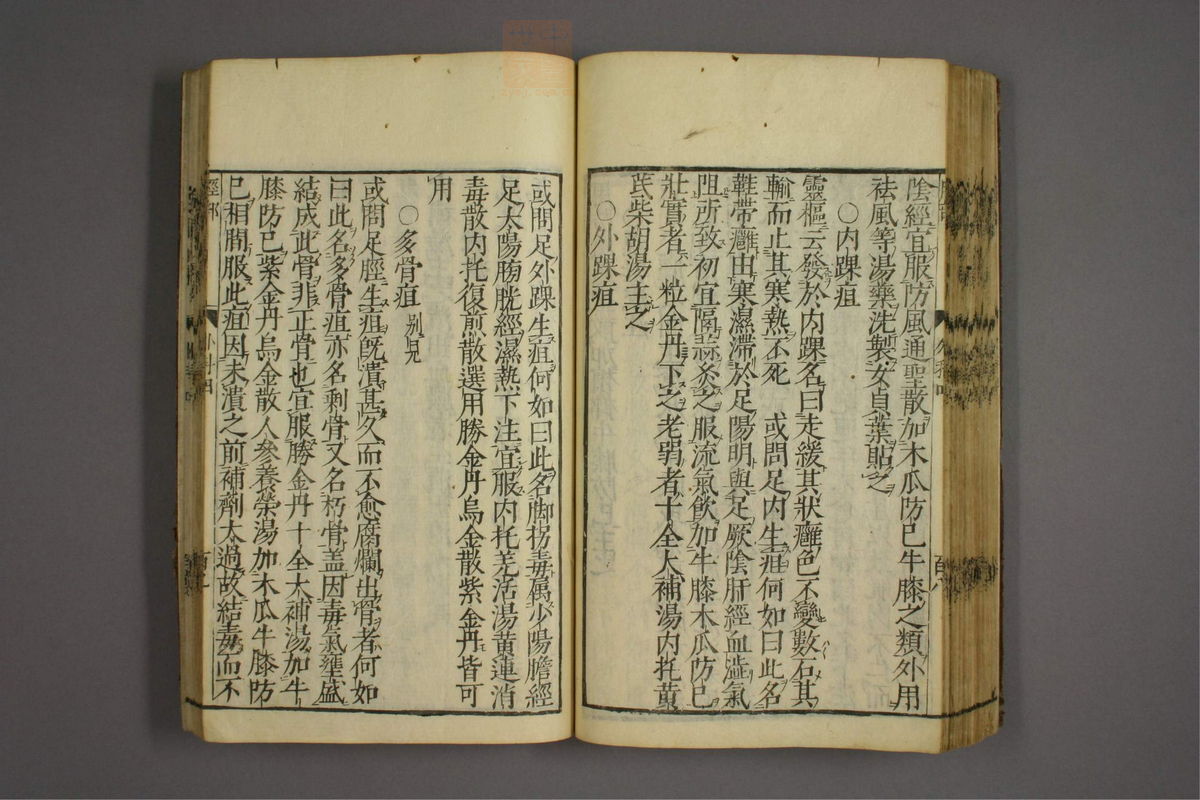 陰經宜服防風通聖散加木瓜防已牛膝之類外用
祛風等湯藥洗製女貞葉貼之
○内踝疽
靈樞云發於内踝名曰走緩其狀癰色不變數石其
輸而止其寒熱不死　或問足内生疽何如曰此名
鞋帶癰由寒濕滯於足陽明與足厥陰肝經血澁氣
阻所致初宜隔蒜灸之服流氣飲加牛膝木瓜防已
壯實者一粒金丹下之老弱者十全大補湯内托黄
芪柴胡湯主之
○外踝疽
或問足外踝生疽何如曰此名脚拐毒属少陽膽經
足太陽膀胱經濕熱下注宜服内托羌活湯黄連消
毒散内托復煎散選用勝金丹烏金散紫金丹皆可
用
○多骨疽　别見
或問足脛生疽既潰甚久而不愈腐爛出骨者何如
曰此名多骨疽亦名剩骨又名朽骨盖因毒氣壅盛
結成此骨非正骨也宜服勝金丹十全大補湯加牛
膝防已紫金丹烏金散人參養榮湯加木瓜牛膝防
已相間服此疽因未潰之前補劑太過故結毒而不